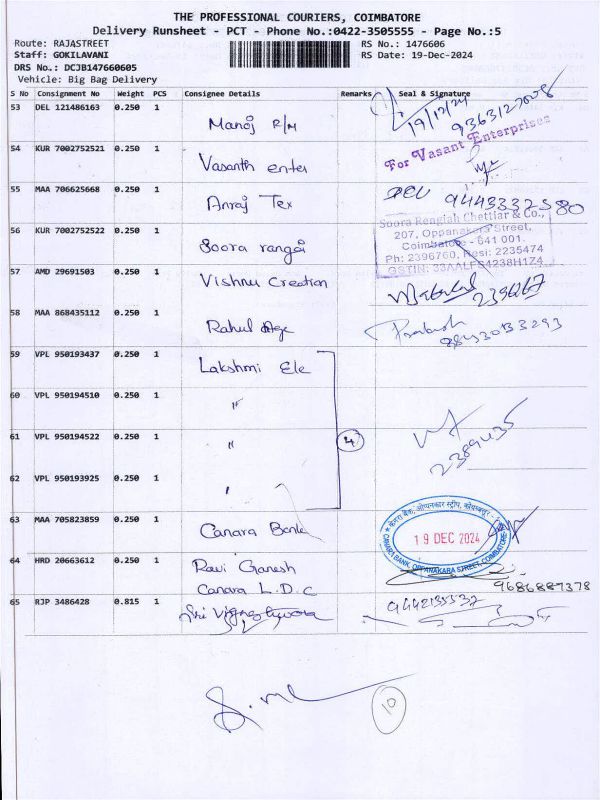 THE PROFESSIONAL COURIERS, COIMBATORE
Delivery Runsheet - PCT - Phone No.:0422-3505555 - Page No.:5
Route: RAJASTREET
Staff: GOKILAVANI
DRS No.: DCJB147660605
Vehicle: Big Bag Delivery
RS No.: 1476606
RS Date: 19-Dec-2024
S No Consignment No Weight PCS Consignee Details Remarks Seal & Signature
53 DEL 121486163 0.250 1 Manoj R/M
19/12/24
For Vasant Enterprises
54 KUR 7002752521 0.250 1 Vasanth enter
55 MAA 706625668 0.250 1 Anraj Tex
9443332580
Soora Rengiah Chettiar & Co.,
207, Oppanakara Street,
Coimbatore - 641 001.
Ph: 2396760, Resi: 2235474
GSTIN: 33AALFS4238H1Z4
56 KUR 7002752522 0.250 1 Soora rangai
57 AMD 29691503 0.250 1 Vishnu Creation
58 MAA 868435112 0.250 1 Rahul Age
Prakash
59 VPL 950193437 0.250 1 Lakshmi Ele
60 VPL 950194510 0.250 1 "
61 VPL 950194522 0.250 1 "
4
2389435
62 VPL 950193925 0.250 1 "
63 MAA 705823859 0.250 1 Canara Bank
19 DEC 2024
CANARA BANK, OPPANAKARA STREET, COIMBATORE
64 HRD 20663612 0.250 1 Ravi Ganesh
Canara L.D.C
9686887378
65 RJP 3486428 0.815 1 Sri Vigneshwara
10